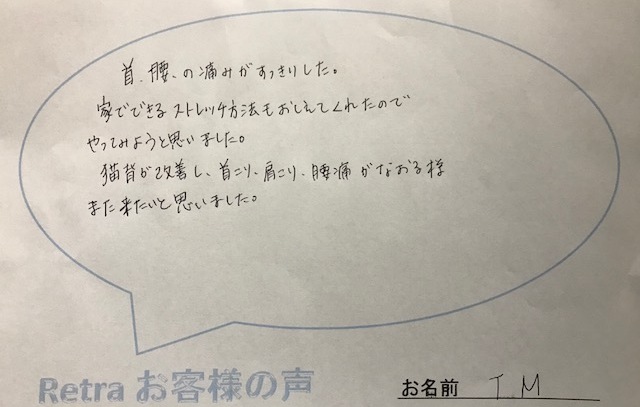 首、腰、の痛みがすっきりした。
家でできるストレッチ方法もおしえてくれたので
やってみようと思いました。
猫背が改善し、首こり、肩こり、腰痛がなおる様
また来たいと思いました。
Retra お客様の声
お名前 T M